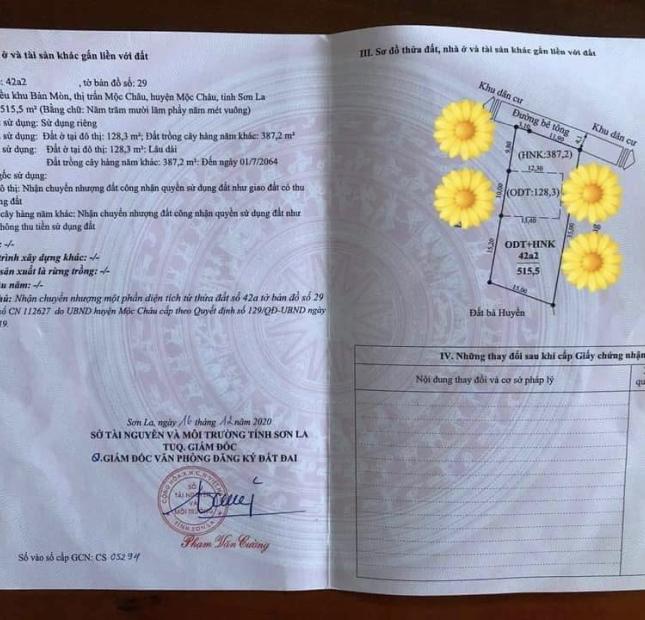 ở và tài sản khác gắn liền với đất
: 42a2 , tờ bản đồ số: 29
ểu khu Bản Môn, thị trấn Mộc Châu, huyện Mộc Châu, tỉnh Sơn La
515,5 m² (Bằng chữ: Năm trăm mười lăm phẩy năm mét vuông)
sử dụng: Sử dụng riêng
sử dụng: Đất ở tại đô thị: 128,3 m²; Đất trồng cây hàng năm khác: 387,2 m²
sử dụng: Đất ở tại đô thị: 128,3 m²: Lâu dài
Đất trồng cây hàng năm khác: 387,2 m²: Đến ngày 01/7/2064
gốc sử dụng:
ô thị: Nhận chuyển nhượng đất công nhận quyền sử dụng đất như giao đất có thu
ng đất
cây hàng năm khác: Nhận chuyển nhượng đất công nhận quyền sử dụng đất như
hông thu tiền sử dụng đất
: -/-
trình xây dựng khác: -/-
sản xuất là rừng trồng: -/-
u năm: -/-
hú: Nhận chuyển nhượng một phần diện tích từ thửa đất số 42a tờ bản đồ số 29
ố CN 112627 do UBND huyện Mộc Châu cấp theo Quyết định số 129/QĐ-UBND ngày
19.
Sơn La, ngày 16 tháng 12 năm 2020
SỞ TÀI NGUYÊN VÀ MÔI TRƯỜNG TỈNH SƠN LA
TUQ. GIÁM ĐỐC
GIÁM ĐỐC VĂN PHÒNG ĐĂNG KÝ ĐẤT ĐAI
SỞ
TÀI NGUYÊN
VÀ
MÔI TRƯỜNG
TỈNH SƠN LA
Phạm Văn Cường
Số vào sổ cấp GCN: CS 05294
III. Sơ đồ thửa đất, nhà ở và tài sản khác gắn liền với đất
Khu dân cư
Đường bê tông
Khu dân cư
11,00
9,80
(HNK:387,2)
12,30
10,00
(ODT:128,3)
13,40
15,20
35,00
ODT+HNK
42a2
515,5
15,00
Đất bà Huyền
IV. Những thay đổi sau khi cấp Giấy chứng nhận
Nội dung thay đổi và cơ sở pháp lý
qu